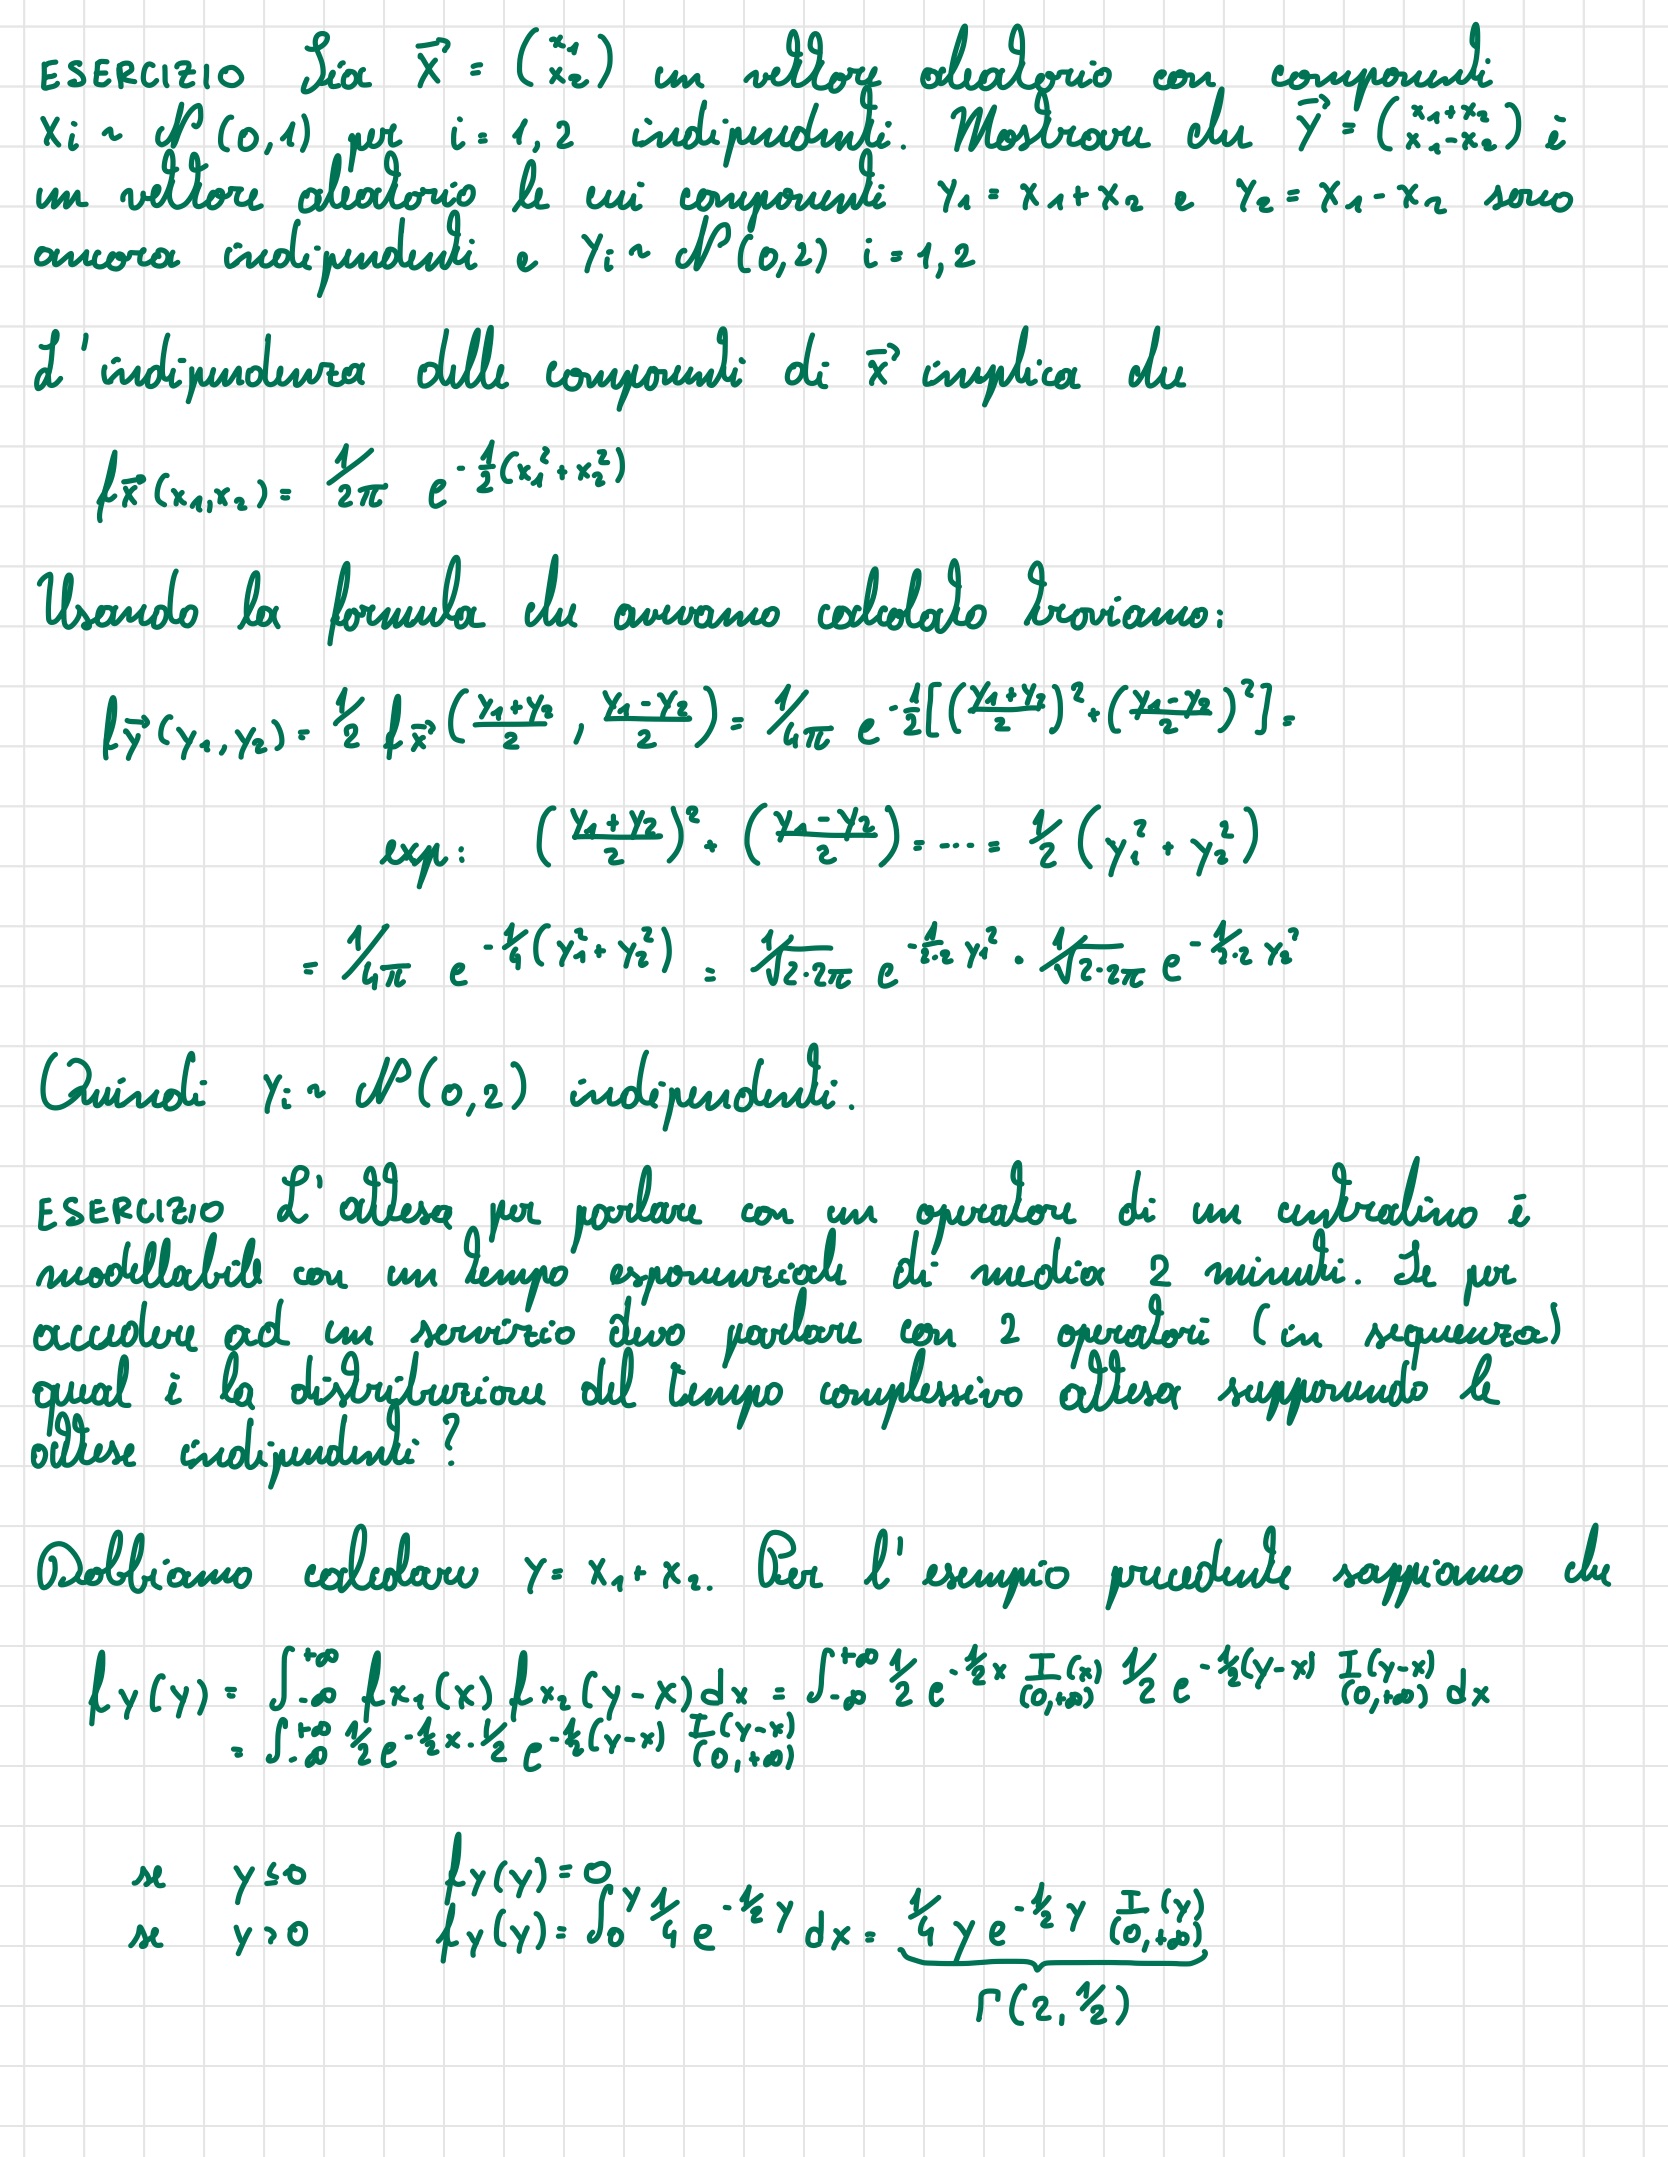 ESERCIZIO Sia X⃗ = (x₁ x₂) un vettore aleatorio con componenti
Xi ~ N(0,1) per i=1,2 indipendenti. Mostrare che Y⃗ = (x₁+x₂ x₁-x₂) è
un vettore aleatorio le cui componenti Y₁ = X₁+X₂ e Y₂ = X₁-X₂ sono
ancora indipendenti e Yi ~ N(0,2) i=1,2
L'indipendenza delle componenti di X⃗ implica che
f_X⃗(x₁,x₂) = 1/2π e^{-1/2(x₁²+x₂²)}
Usando la formula che avevamo calcolato troviamo:
f_Y⃗(y₁,y₂) = 1/2 f_X⃗((y₁+y₂)/2, (y₁-y₂)/2) = 1/4π e^{-1/2[((y₁+y₂)/2)²+((y₁-y₂)/2)²]} =
exp: ((y₁+y₂)/2)² + ((y₁-y₂)/2) = ···· = 1/2 (y₁² + y₂²)
= 1/4π e^{-1/4(y₁²+y₂²)} = 1/√(2·2π) e^{-1/(2·2) y₁²} · 1/√(2·2π) e^{-1/(2·2) y₂²}
Quindi Yi ~ N(0,2) indipendenti.
ESERCIZIO L'attesa per parlare con un operatore di un centralino è
modellabile con un tempo esponenziale di media 2 minuti. Se per
accedere ad un servizio devo parlare con 2 operatori (in sequenza)
qual è la distribuzione del tempo complessivo attesa supponendo le
attese indipendenti?
Dobbiamo calcolare Y = X₁ + X₂. Per l'esempio precedente sappiamo che
f_Y(y) = ∫_{-∞}^{+∞} f_X₁(x) f_X₂(y-x) dx = ∫_{-∞}^{+∞} 1/2 e^{-1/2 x} I_(0,+∞)(x) 1/2 e^{-1/2(y-x)} I_(0,+∞)(y-x) dx
= ∫_{-∞}^{+∞} 1/2 e^{-1/2 x} · 1/2 e^{-1/2(y-x)} I_(0,+∞)(y-x)
se y≤0 f_Y(y) = 0
se y>0 f_Y(y) = ∫_0^y 1/4 e^{-1/2 y} dx = 1/4 y e^{-1/2 y} I_(0,+∞)(y)
Γ(2,1/2)